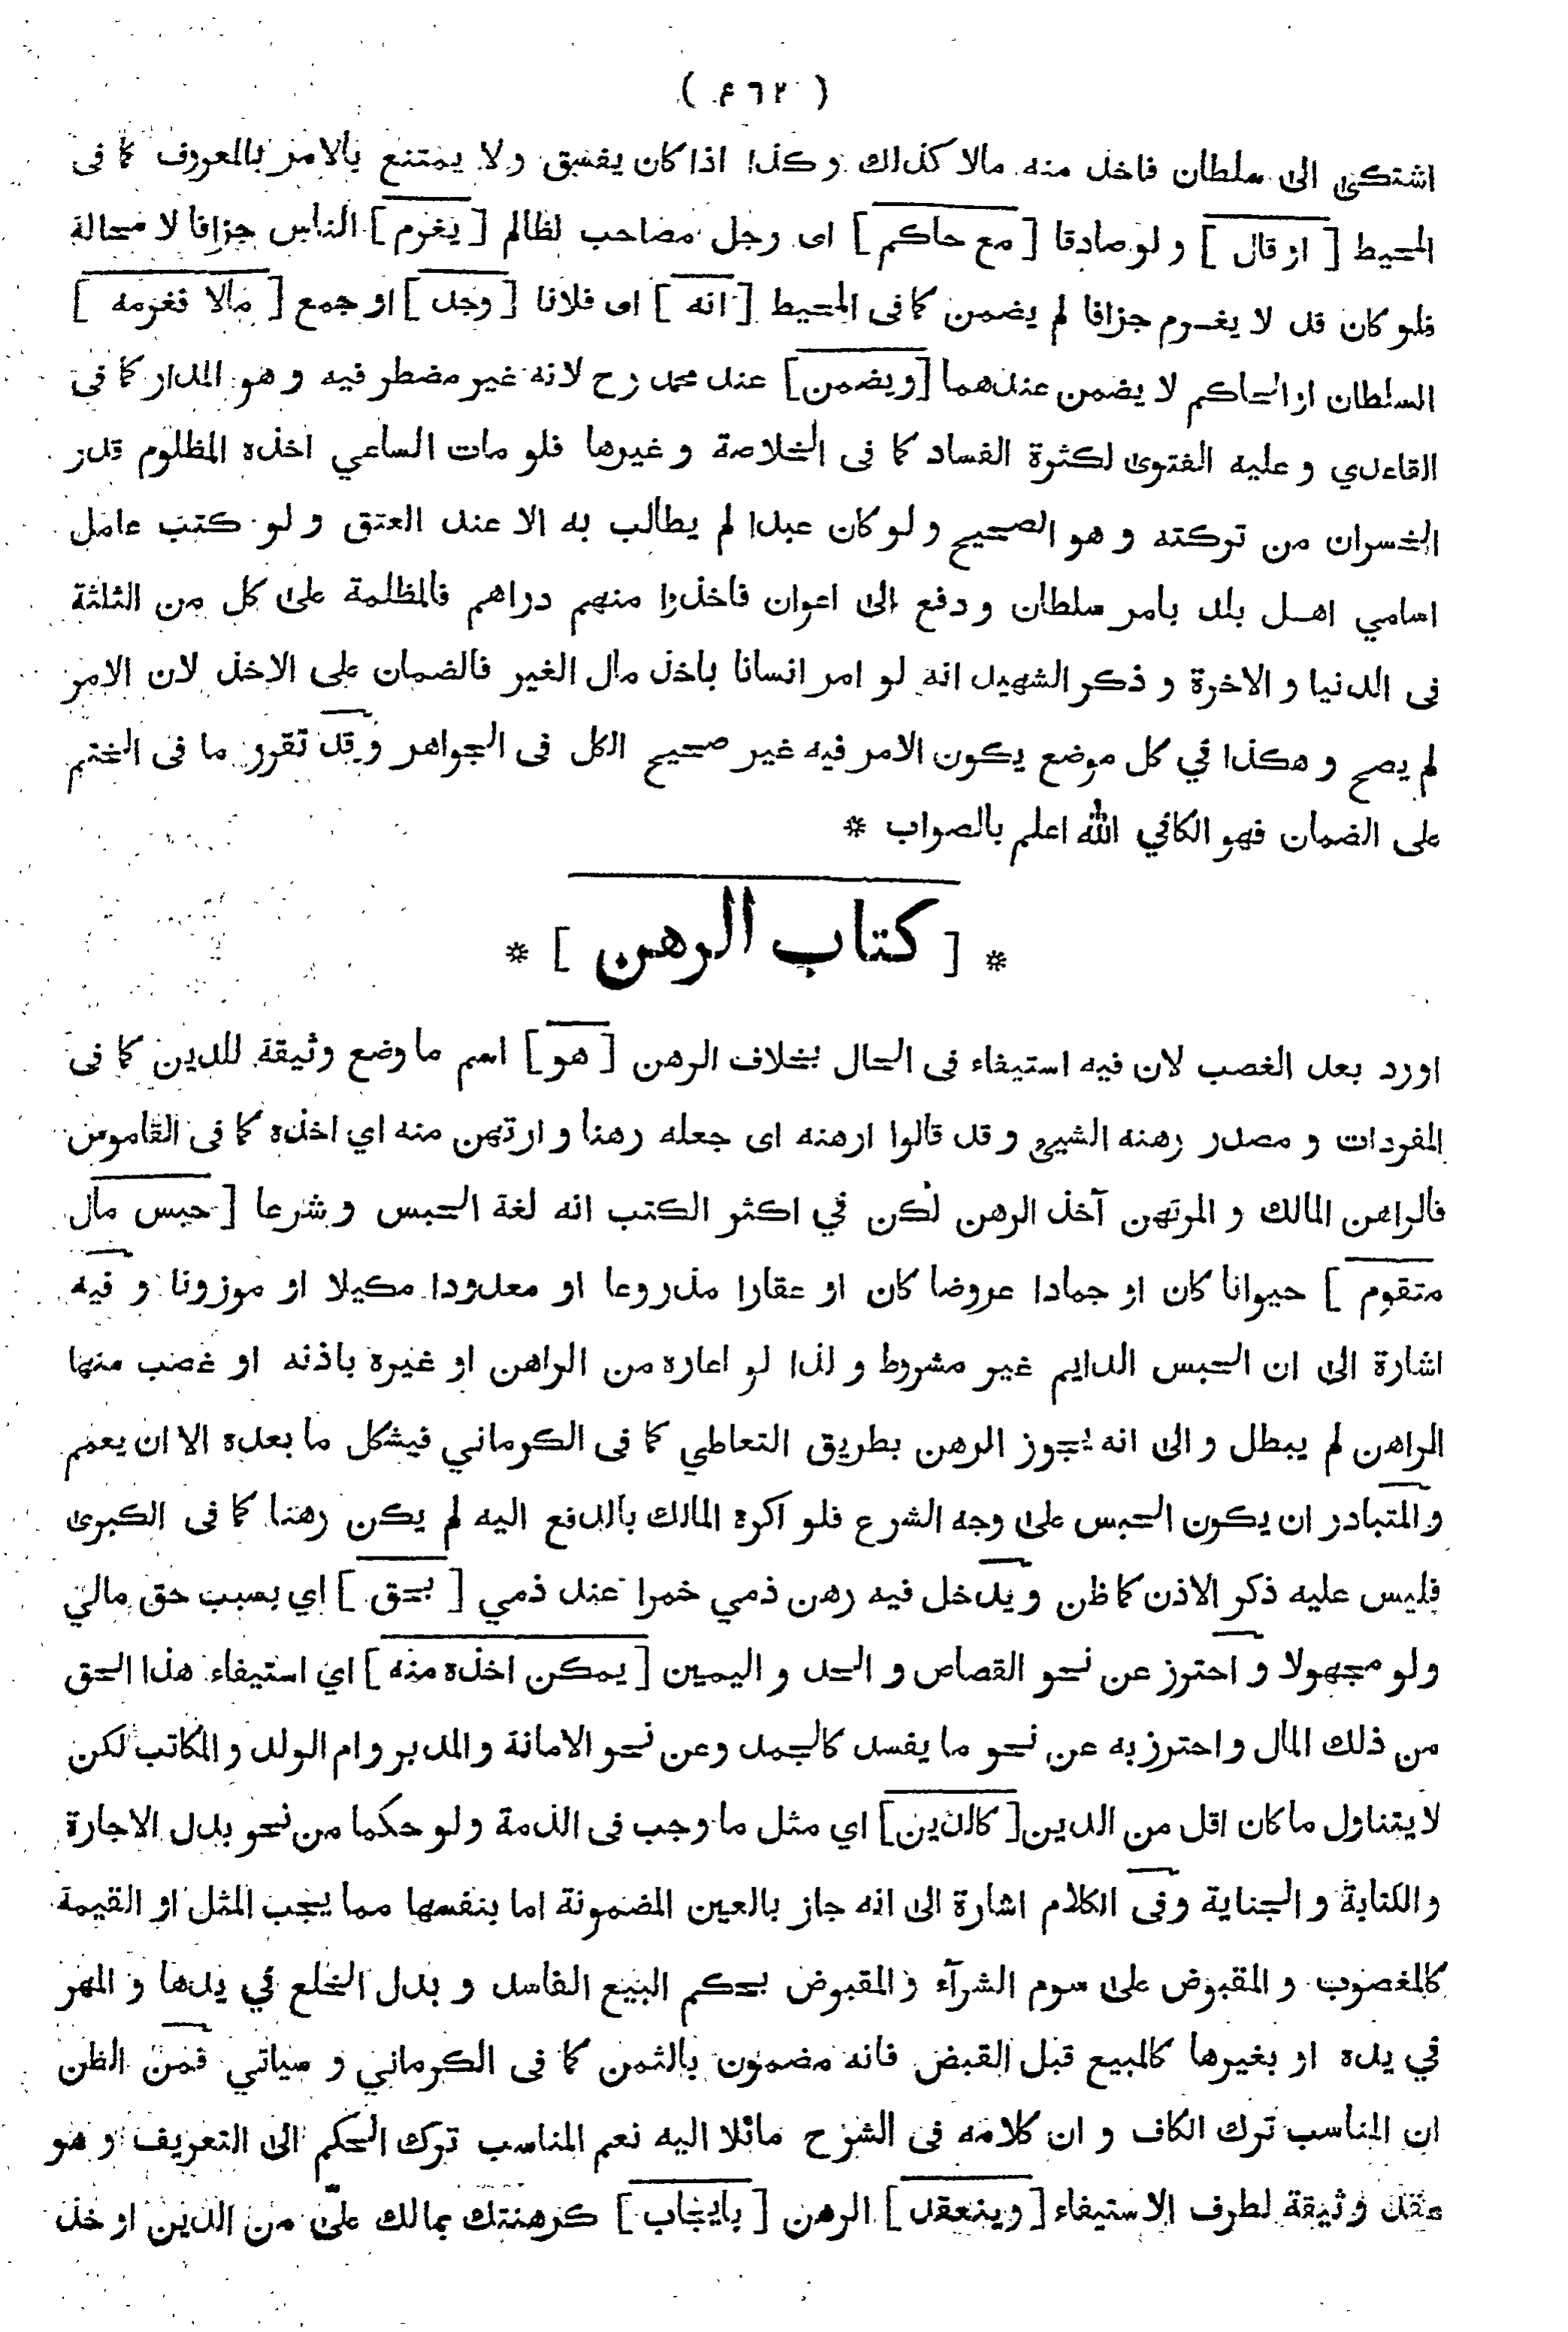 ( ٤٦٢ )
اشتكى الى سلطان فاخذ منه مالا كذلك وكذا اذا كان يفسق ولا يمتنع بالامر بالمعروف كما فى
المحيط [ او قال ] ولو صادقا [ مع حاكم ] اى رجل مصاحب لظالم [ يغرم ] الناس جزافا لا محالة
فلو كان قد لا يغرم جزافا لم يضمن كما فى المحيط [ انه ] اى فلانا [ وجد ] او جمع [ مالا فغرمه ]
السلطان او الحاكم لا يضمن عندهما [ ويضمن ] عند محمد رح لانه غير مضطر فيه وهو المدار كما فى
القاعدي وعليه الفتوى لكثرة الفساد كما فى الخلاصة وغيرها فلو مات الساعي اخذه المظلوم قدر
الخسران من تركته وهو الصحيح ولو كان عبدا لم يطالب به الا عند العتق ولو كتب عامل
اسامي اهل بلد بامر سلطان ودفع الى اعوان فاخذوا منهم دراهم فالمظلمة على كل من الثلثة
فى الدنيا و الاخرة و ذكر الشهيد انه لو امر انسانا باخذ مال الغير فالضمان على الاخذ لان الامر
لم يصح و هكذا في كل موضع يكون الامر فيه غير صحيح الكل فى الجواهر وقد تقرر ما فى الختم
على الضمان فهو الكافي الله اعلم بالصواب *
* [ كتاب الرهن ] *
اورد بعد الغصب لان فيه استيفاء فى الحال بخلاف الرهن [ هو ] اسم ما وضع وثيقة للدين كما فى
المفردات و مصدر رهنه الشيئ وقد قالوا ارهنه اى جعله رهنا و ارتهن منه اي اخذه كما فى القاموس
فالراهن المالك و المرتهن آخذ الرهن لكن في اكثر الكتب انه لغة الحبس و شرعا [ حبس مال
متقوم ] حيوانا كان او جمادا عروضا كان او عقارا مذروعا او معدودا مكيلا او موزونا و فيه
اشارة الى ان الحبس الدايم غير مشروط و لذا لو اعاره من الراهن او غيره باذنه او غصب منها
الراهن لم يبطل و الى انه يجوز الرهن بطريق التعاطي كما فى الكرماني فيشكل ما بعده الا ان يعمم
والمتبادر ان يكون الحبس على وجه الشرع فلو اكره المالك بالدفع اليه لم يكن رهنا كما فى الكبرى
فليس عليه ذكر الاذن كما ظن و يدخل فيه رهن ذمي خمرا عند ذمي [ بحق ] اي بسبب حق مالي
ولو مجهولا و احترز عن نحو القصاص و الحد و اليمين [ يمكن اخذه منه ] اي استيفاء هذا الحق
من ذلك المال و احترز به عن نحو ما يفسد كالجمد وعن نحو الامانة والمدبر وام الولد والمكاتب لكن
لا يتناول ما كان اقل من الدين [ كالدين ] اي مثل ما وجب فى الذمة ولو حكما من نحو بدل الاجارة
والكتابة و الجناية وفى الكلام اشارة الى انه جاز بالعين المضمونة اما بنفسها مما يجب المثل او القيمة
كالمغصوب و المقبوض على سوم الشرآء و المقبوض بحكم البيع الفاسد و بدل الخلع في يدها و المهر
في يده او بغيرها كالمبيع قبل القبض فانه مضمون بالثمن كما فى الكرماني و سياتي فمن الظن
ان المناسب ترك الكاف و ان كلامه فى الشرح مائلا اليه نعم المناسب ترك الحكم الى التعريف و هو
عقد وثيقة لطرف الاستيفاء [ وينعقد ] الرهن [ بايجاب ] كرهنتك بمالك علىّ من الدين او خذ